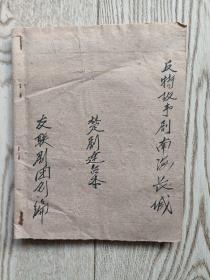 反特故事剧南海长城
楚剧连台本
友联剧团创编